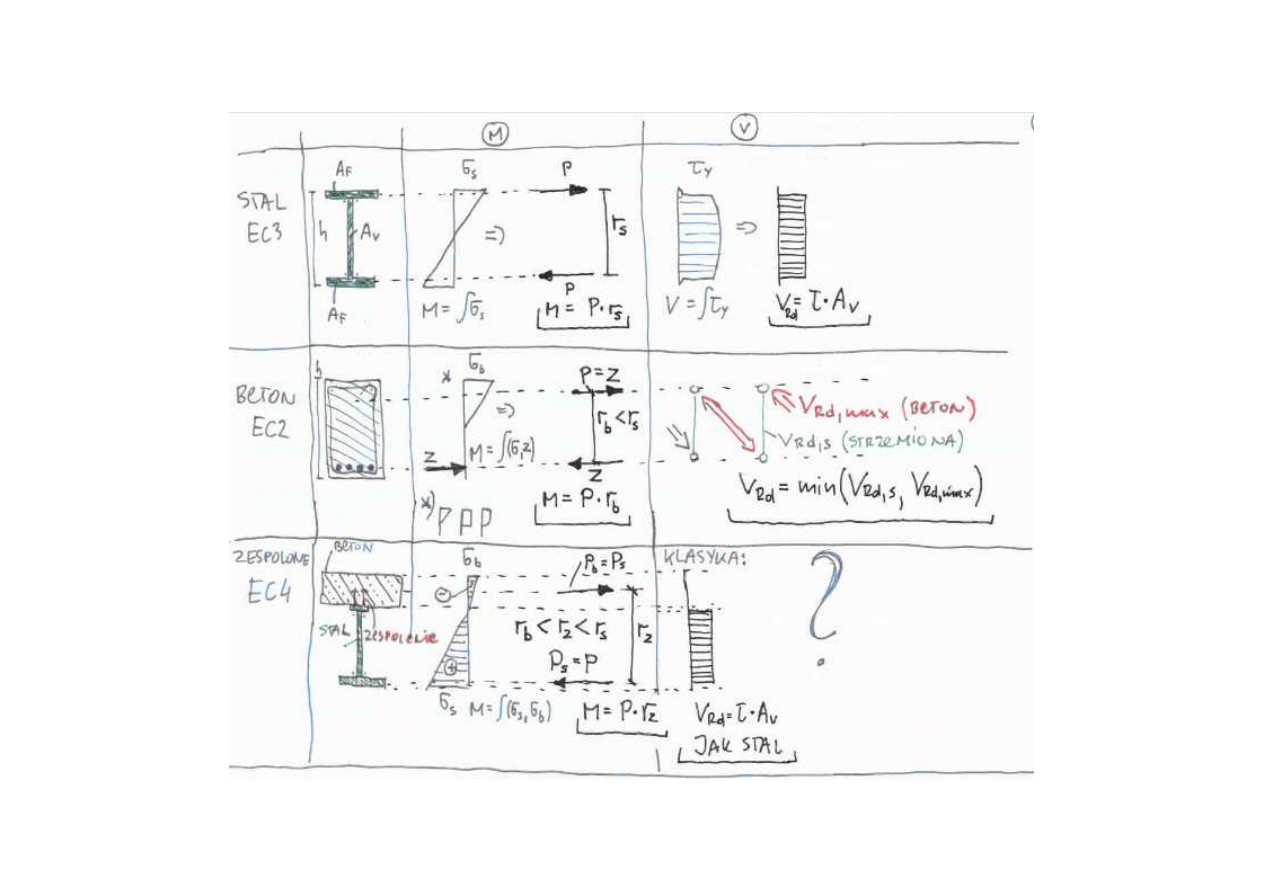 M
V
STAL
EC3
AF
h
AV
AF
σs
=>
M = ∫σs
P
rs
P
M = P·rs
τy
=>
V = ∫τy
VRd = τ·AV
BETON
EC2
h
*
σb
=>
Z
M = ∫(σ,z)
*)
P=Z
rb < rs
Z
M = P·rb
VRd,max (BETON)
VRd,s (STRZEMIONA)
VRd = min(VRd,s, VRd,max)
ZESPOLONE
EC4
BETON
STAL
ZESPOLENIE
σb
−
+
σs
M = ∫(σs, σb)
Pb = Ps
rb < rz < rs
rz
Ps = P
M = P·rz
KLASYKA:
VRd = τ·AV
JAK STAL
?